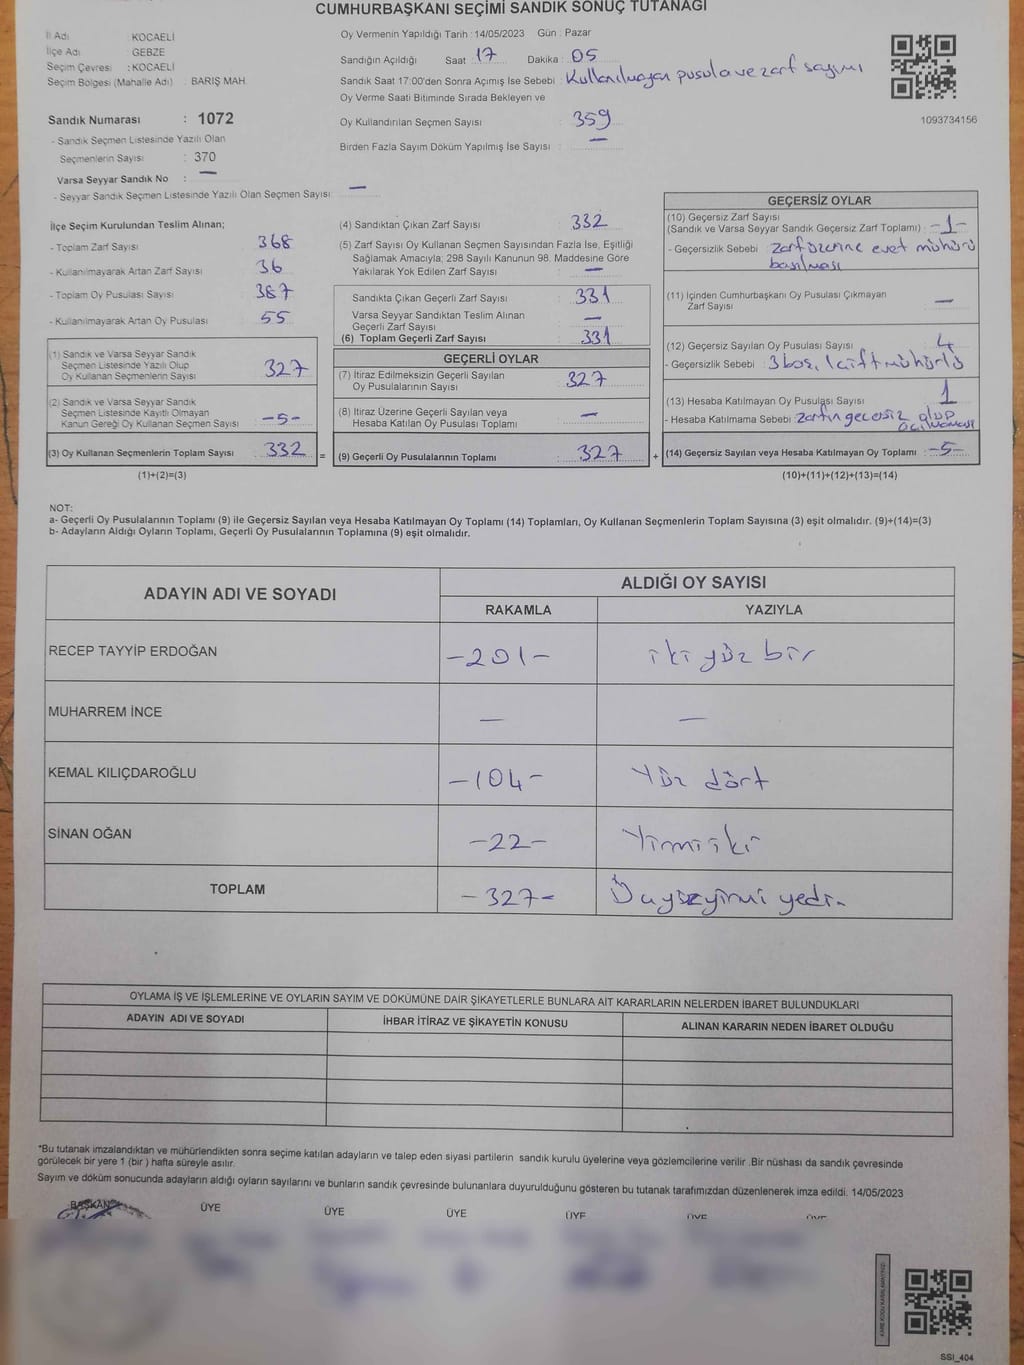 CUMHURBAŞKANI SEÇİMİ SANDIK SONUÇ TUTANAĞI
İl Adı : KOCAELİ
İlçe Adı : GEBZE
Seçim Çevresi : KOCAELİ
Seçim Bölgesi (Mahalle Adı) : BARIŞ MAH.
Oy Vermenin Yapıldığı Tarih : 14/05/2023 Gün : Pazar
Sandığın Açıldığı Saat : 17 Dakika : 05
Sandık Saat 17:00'den Sonra Açımış İse Sebebi : Kullanılmayan pusula ve zarf sayımı
Oy Verme Saati Bitiminde Sırada Bekleyen ve
Oy Kullandırılan Seçmen Sayısı : 359
Birden Fazla Sayım Döküm Yapılmış İse Sayısı : —
1093734156
Sandık Numarası : 1072
- Sandık Seçmen Listesinde Yazılı Olan
Seçmenlerin Sayısı : 370
Varsa Seyyar Sandık No : —
- Seyyar Sandık Seçmen Listesinde Yazılı Olan Seçmen Sayısı : —
İlçe Seçim Kurulundan Teslim Alınan;
- Toplam Zarf Sayısı : 368
- Kullanılmayarak Artan Zarf Sayısı : 36
- Toplam Oy Pusulası Sayısı : 387
- Kullanılmayarak Artan Oy Pusulası : 55
(1) Sandık ve Varsa Seyyar Sandık
Seçmen Listesinde Yazılı Olup
Oy Kullanan Seçmenlerin Sayısı : 327
(2) Sandık ve Varsa Seyyar Sandık
Seçmen Listesinde Kayıtlı Olmayan
Kanun Gereği Oy Kullanan Seçmen Sayısı : -5-
(3) Oy Kullanan Seçmenlerin Toplam Sayısı : 332 =
(1)+(2)=(3)
(4) Sandıktan Çıkan Zarf Sayısı : 332
(5) Zarf Sayısı Oy Kullanan Seçmen Sayısından Fazla İse, Eşitliği
Sağlamak Amacıyla; 298 Sayılı Kanunun 98. Maddesine Göre
Yakılarak Yok Edilen Zarf Sayısı : —
Sandıkta Çıkan Geçerli Zarf Sayısı : 331
Varsa Seyyar Sandıktan Teslim Alınan
Geçerli Zarf Sayısı : —
(6) Toplam Geçerli Zarf Sayısı : 331
GEÇERLİ OYLAR
(7) İtiraz Edilmeksizin Geçerli Sayılan
Oy Pusulalarının Sayısı : 327
(8) İtiraz Üzerine Geçerli Sayılan veya
Hesaba Katılan Oy Pusulası Toplamı : —
(9) Geçerli Oy Pusulalarının Toplamı : 327 +
GEÇERSİZ OYLAR
(10) Geçersiz Zarf Sayısı
(Sandık ve Varsa Seyyar Sandık Geçersiz Zarf Toplamı) : -1-
- Geçersizlik Sebebi : Zarf üzerine evet mühürü
basılması
(11) İçinden Cumhurbaşkanı Oy Pusulası Çıkmayan
Zarf Sayısı : —
(12) Geçersiz Sayılan Oy Pusulası Sayısı : 4
- Geçersizlik Sebebi : 3 boş, 1 çift mühürlü
(13) Hesaba Katılmayan Oy Pusulası Sayısı : 1
- Hesaba Katılmama Sebebi : Zarfın geçersiz olup
açılmaması
(14) Geçersiz Sayılan veya Hesaba Katılmayan Oy Toplamı : -5-
(10)+(11)+(12)+(13)=(14)
NOT:
a- Geçerli Oy Pusulalarının Toplamı (9) ile Geçersiz Sayılan veya Hesaba Katılmayan Oy Toplamı (14) Toplamları, Oy Kullanan Seçmenlerin Toplam Sayısına (3) eşit olmalıdır. (9)+(14)=(3)
b- Adayların Aldığı Oyların Toplamı, Geçerli Oy Pusulalarının Toplamına (9) eşit olmalıdır.
ADAYIN ADI VE SOYADI
ALDIĞI OY SAYISI
RAKAMLA YAZIYLA
RECEP TAYYİP ERDOĞAN -201- iki yüz bir
MUHARREM İNCE — —
KEMAL KILIÇDAROĞLU -104- Yüz dört
SİNAN OĞAN -22- Yirmi iki
TOPLAM -327- Üçyüzyirmi yedi
OYLAMA İŞ VE İŞLEMLERİNE VE OYLARIN SAYIM VE DÖKÜMÜNE DAİR ŞİKAYETLERLE BUNLARA AİT KARARLARIN NELERDEN İBARET BULUNDUKLARI
ADAYIN ADI VE SOYADI İHBAR İTİRAZ VE ŞİKAYETİN KONUSU ALINAN KARARIN NEDEN İBARET OLDUĞU
*Bu tutanak imzalandıktan ve mühürlendikten sonra seçime katılan adayların ve talep eden siyasi partilerin sandık kurulu üyelerine veya gözlemcilerine verilir .Bir nüshası da sandık çevresinde
görülecek bir yere 1 (bir ) hafta süreyle asılır.
Sayım ve döküm sonucunda adayların aldığı oyların sayılarını ve bunların sandık çevresinde bulunanlara duyurulduğunu gösteren bu tutanak tarafımızdan düzenlenerek imza edildi. 14/05/2023
BAŞKAN ÜYE ÜYE ÜYE ÜYE ÜYE ÜYE
SSI_404